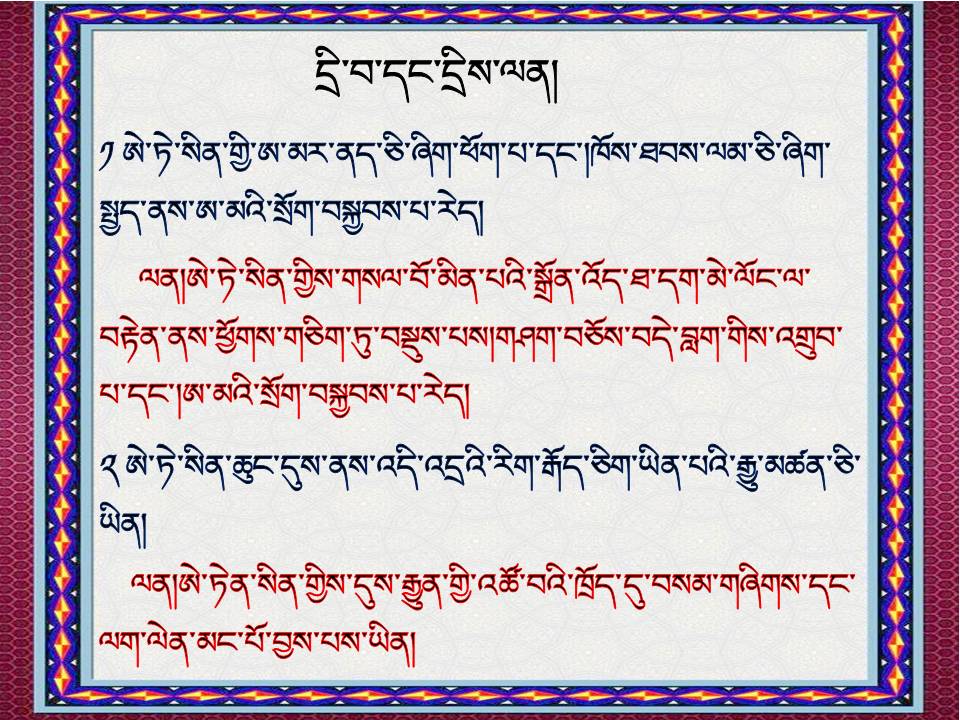 དྲི་བ་དང་དྲིས་ལན།
༡ ཨེ་ཏེ་སིན་གྱི་ཨ་མར་ནད་ཅི་ཞིག་ཕོག་པ་དང་།ཁོས་ཐབས་ལམ་ཅི་ཞིག་
སྤྱད་ནས་ཨ་མའི་སྲོག་བསྐྱབས་པ་རེད།
ལན།ཨེ་ཏེ་སིན་གྱིས་གསལ་བོ་མིན་པའི་སྒྲོན་འོད་ཐ་དག་མེ་ལོང་ལ་
བརྟེན་ནས་ཕྱོགས་གཅིག་ཏུ་བསྡུས་པས།གཤག་བཅོས་བདེ་བླག་གིས་འགྲུབ་
པ་དང་།ཨ་མའི་སྲོག་བསྐྱབས་པ་རེད།
༢ ཨེ་ཏེ་སིན་ཆུང་དུས་ནས་འདི་འདྲའི་རིག་རྒོད་ཅིག་ཡིན་པའི་རྒྱུ་མཚན་ཅི་
ཡིན།
ལན།ཨེ་ཏེན་སིན་གྱིས་དུས་རྒྱུན་གྱི་འཚོ་བའི་ཁྲོད་དུ་བསམ་གཞིགས་དང་
ལག་ལེན་མང་པོ་བྱས་པས་ཡིན།